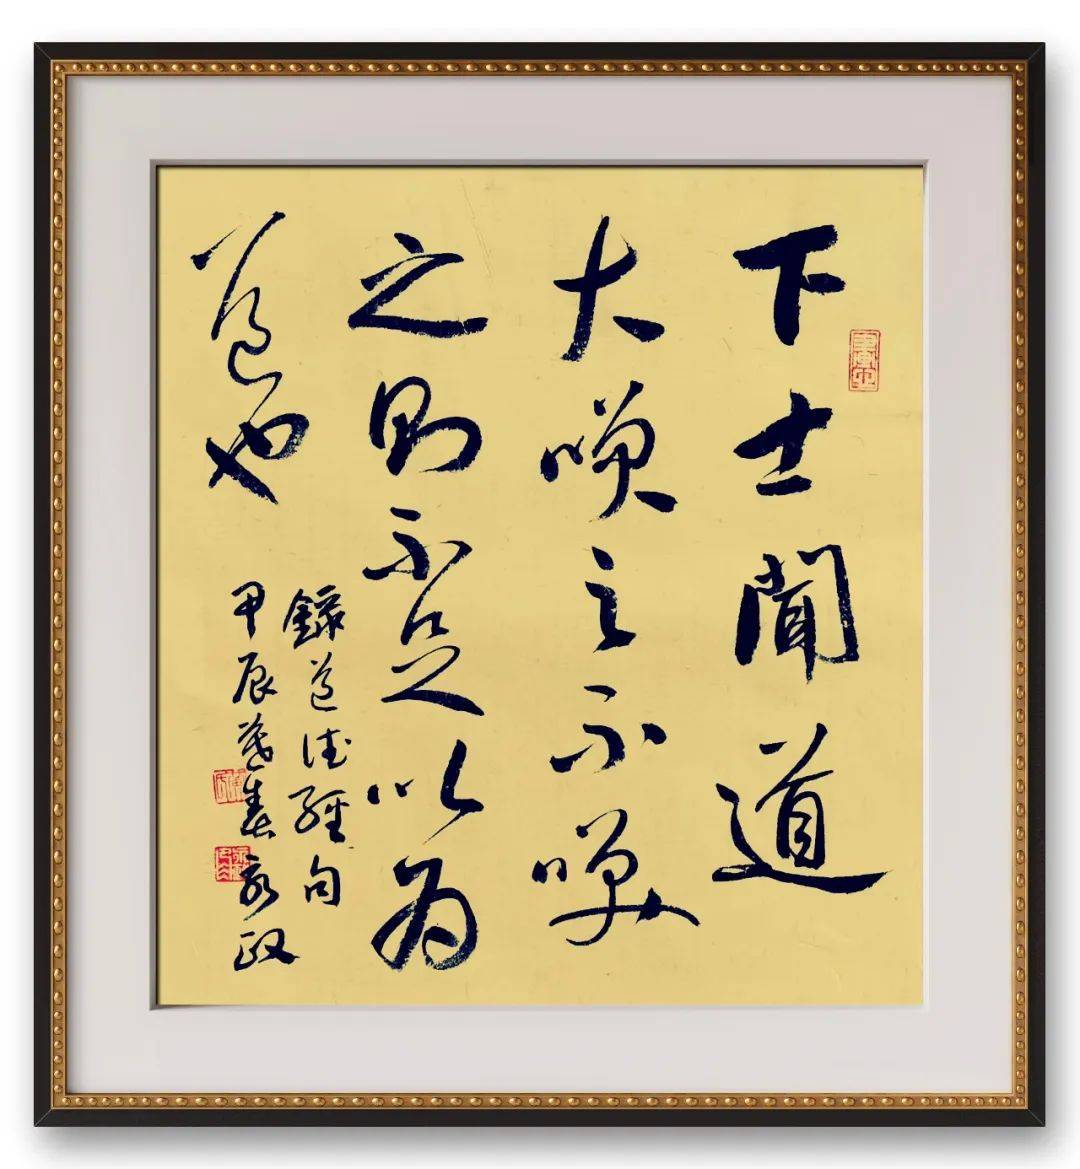 下士聞道
大咲之不咲
之則不足以為
道也
錄道德經句
甲辰暮春永政